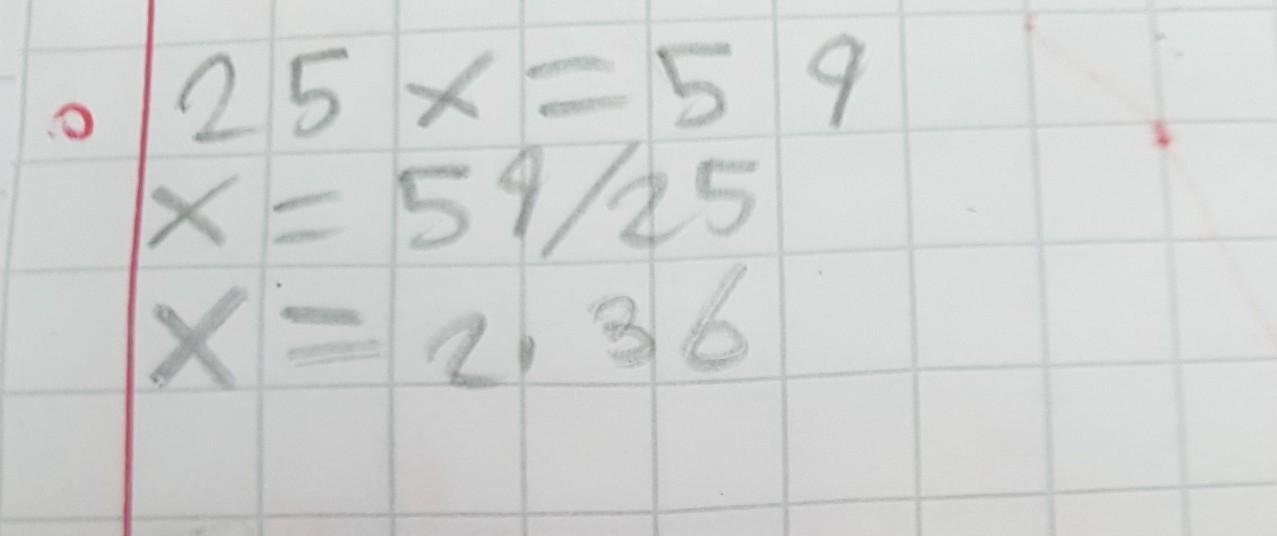 25x=59
x=59/25
x=2.36